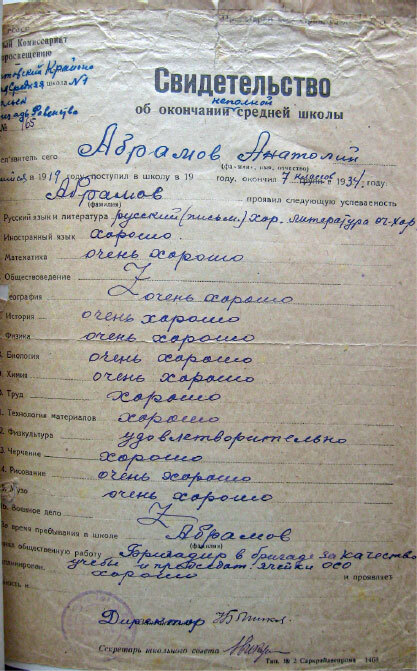 ный Комиссариат
просвещению
Крайоно
средняя школа №1
№ 165
Свидетельство
неполной
об окончании средней школы
Абрамов Анатолий
(фамилия, имя, отчество)
в 1919 году, поступил в школу в 19 году, окончил 7 классов в 1934 году.
Абрамов проявил следующую успеваемость
(фамилия)
Русский язык и литература русский (письм.) хор. литература оч-хор
Иностранный язык хорошо
Математика очень хорошо
Обществоведение Z
География очень хорошо
История очень хорошо
Физика очень хорошо
Биология очень хорошо
Химия очень хорошо
Труд хорошо
Технология материалов хорошо
Физкультура удовлетворительно
3. Черчение хорошо
4. Рисование очень хорошо
очень хорошо
Военное дело Z
время пребывания в школе Абрамов
(фамилия)
общественную работу Бригадир в бригаде за качество
учебы и председат. ячейки ОСО
хорошо и проявляет
Директор
Секретарь школьного совета
Тип. № 2